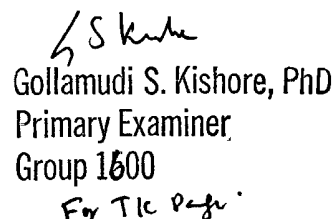 Gollamudi S. Kishore, PhD
Primary Examiner
Group 1600
For TK Page.